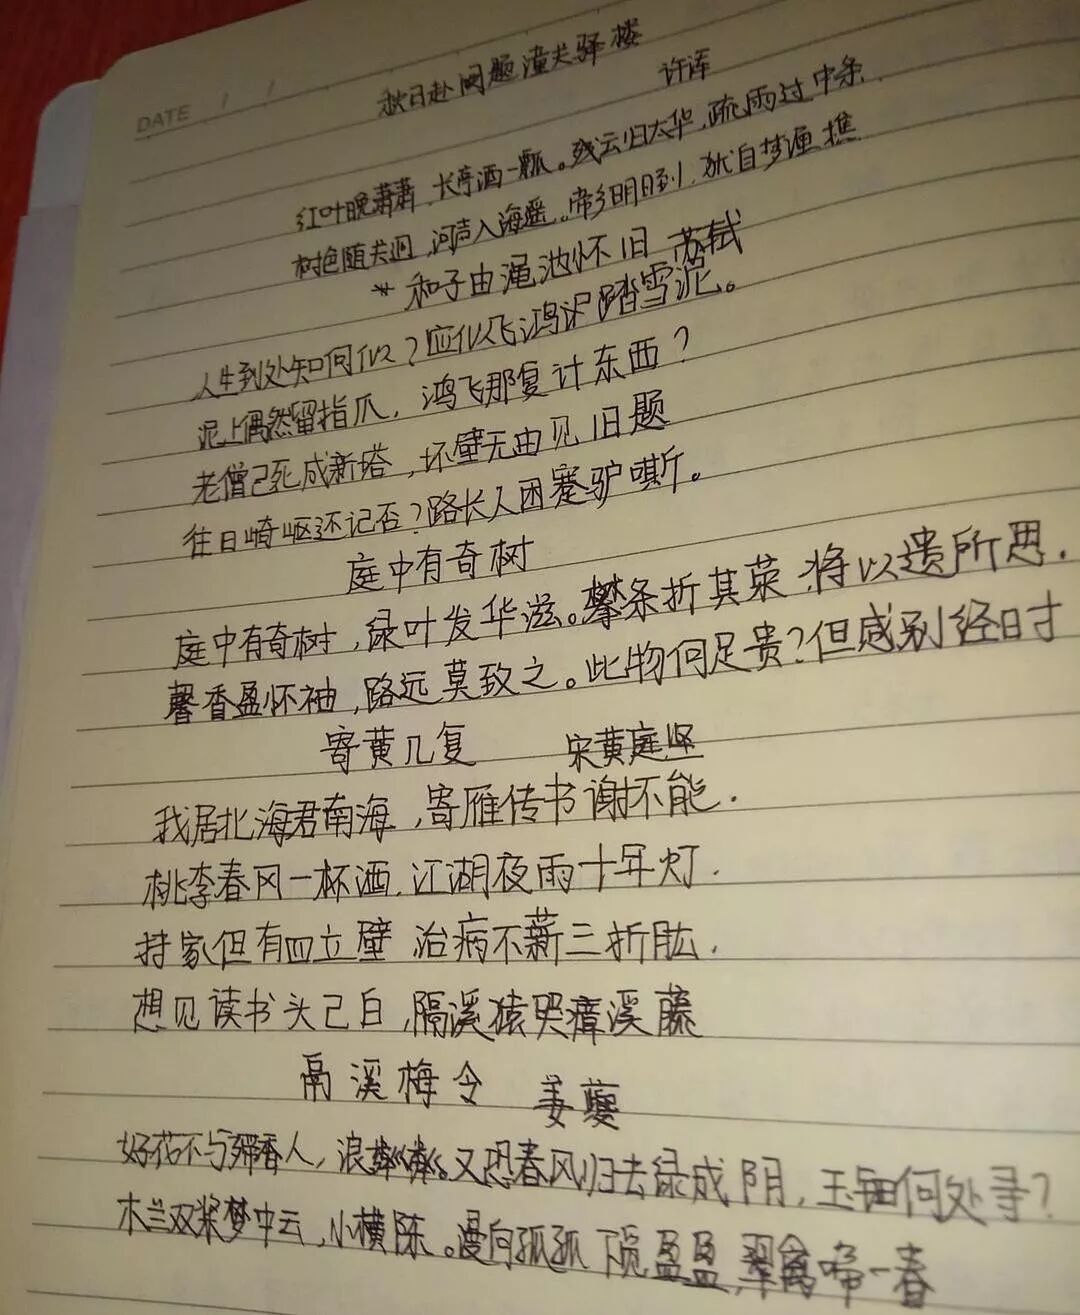 DATE / /
秋日赴阙题潼关驿楼
许浑
红叶晚萧萧,长亭酒一瓢。残云归太华,疏雨过中条
树色随关迥,河声入海遥。帝乡明日到,犹自梦渔樵
* 和子由渑池怀旧 苏轼
人生到处知何似?应似飞鸿踏雪泥。
泥上偶然留指爪,鸿飞那复计东西?
老僧已死成新塔,坏壁无由见旧题
往日崎岖还记否?路长人困蹇驴嘶。
庭中有奇树
庭中有奇树,绿叶发华滋。攀条折其荣,将以遗所思.
馨香盈怀袖,路远莫致之。此物何足贵?但感别经时
寄黄几复 宋黄庭坚
我居北海君南海,寄雁传书谢不能.
桃李春风一杯酒.江湖夜雨十年灯.
持家但有四立壁 治病不蕲三折肱.
想见读书头已白,隔溪猿哭瘴溪藤
鬲溪梅令 姜夔
好花不与殢香人,浪粼粼。又恐春风归去绿成阴,玉钿何处寻?
木兰双桨梦中云,小横陈。漫向孤孤下觅盈盈,翠禽啼一春